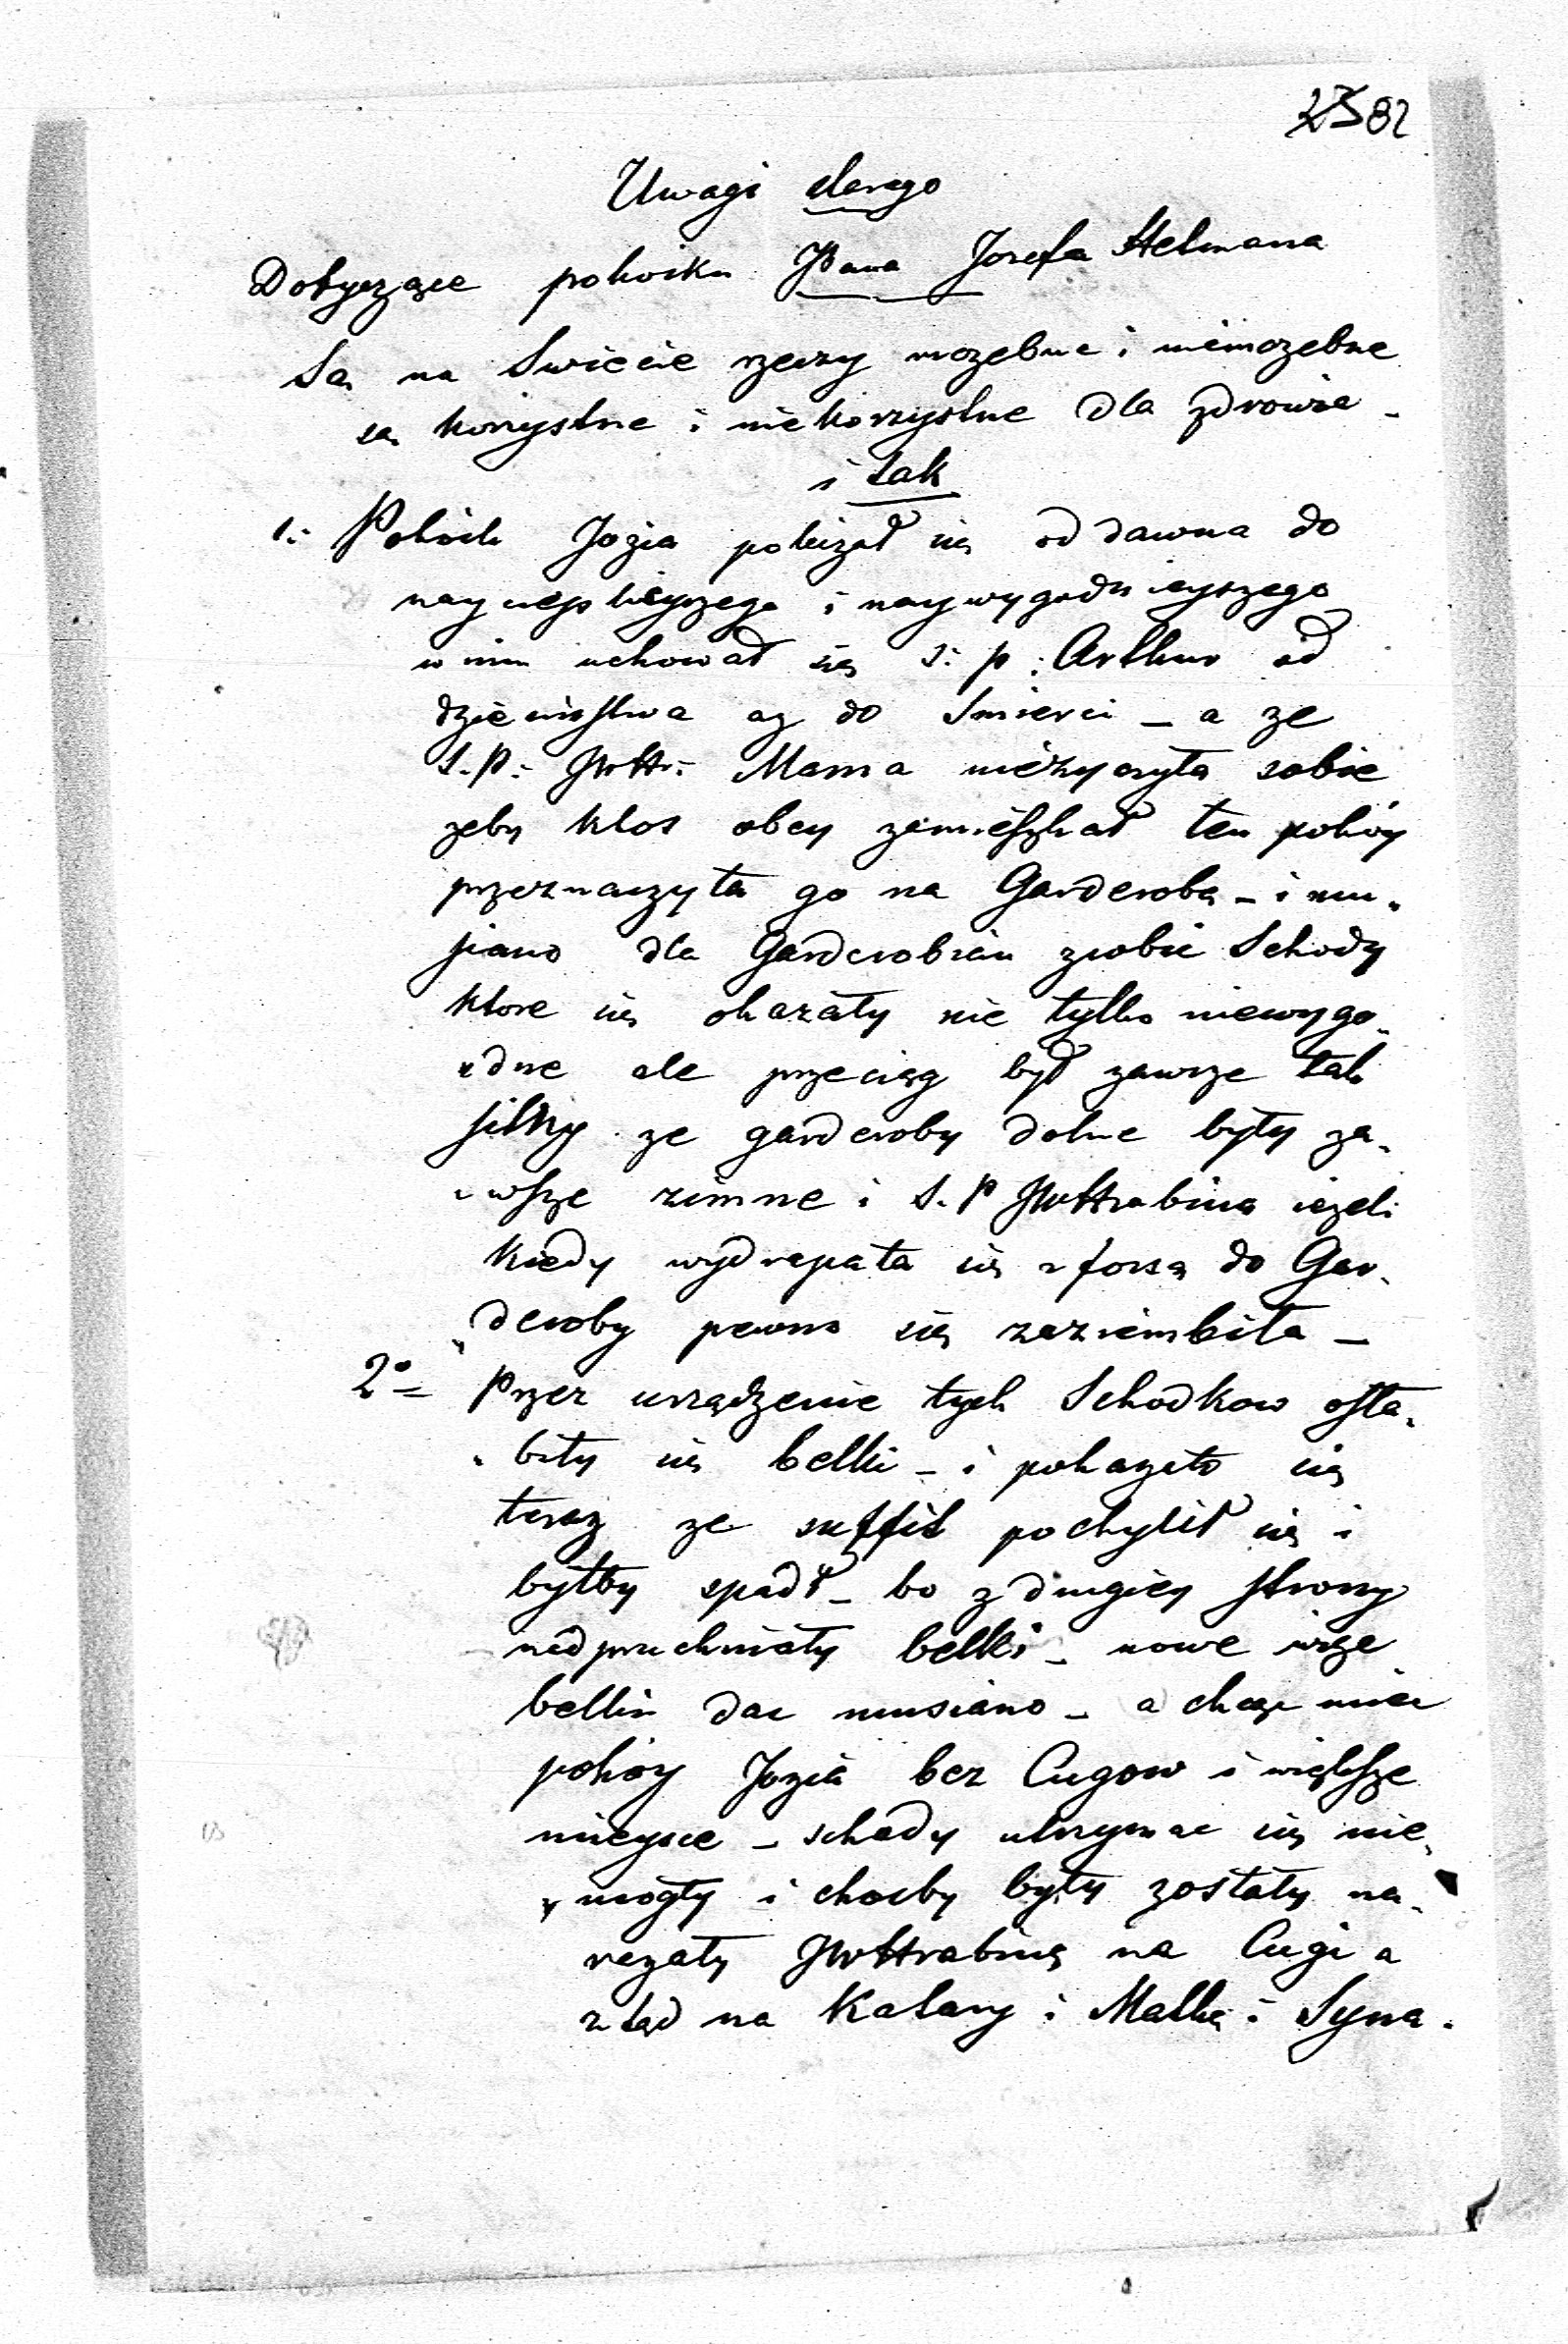 82
Uwagi starego
Dotyczące pokoiku JPana Jozefa Hetmana
Są na Swiecie rzeczy mozebne i niemozebne
są korzystne i niekorzystne dla zdrowia -
i tak
1.: Pokoik Jozia policzał się od dawna do
naycieplieyszego i naywygodnieyszego
w nim uchował się S: p: Arthur od
dzieciństwa az do Smierci - a ze
S.P: JWH: Mama nieżyczyła sobie
zeby ktos obcy zamieszkał ten pokóy
przeznaczyła go na Garderobą - i mu-
siano dla Garderobian zrobic Schody
ktore się okazały nie tylko niewygo-
dne ale przeciąg był zawsze tak
silny ze garderoby dolne były za-
wsze zimne i S. P JWHrabina iezeli
kiedy wydrapała się z forsą do Gar-
deroby pewno się zaziembiła -
2º= Przez urządzenie tych Schodkow osła-
biły się belki - i pokazało się
teraz ze suffit pochylił się i
byłby spadł - bo z drugiey strony
nadpruchniały belki - nowe wize
belki dac musiano - a chcąc miec
pokóy Jozia bez Cugow i większe
mieysce - schody utrzymac się nie-
mogły i chocby były zostały na-
razały JWHrabinę na Cugi a
z tąd na Katary i Matkę i Syna.